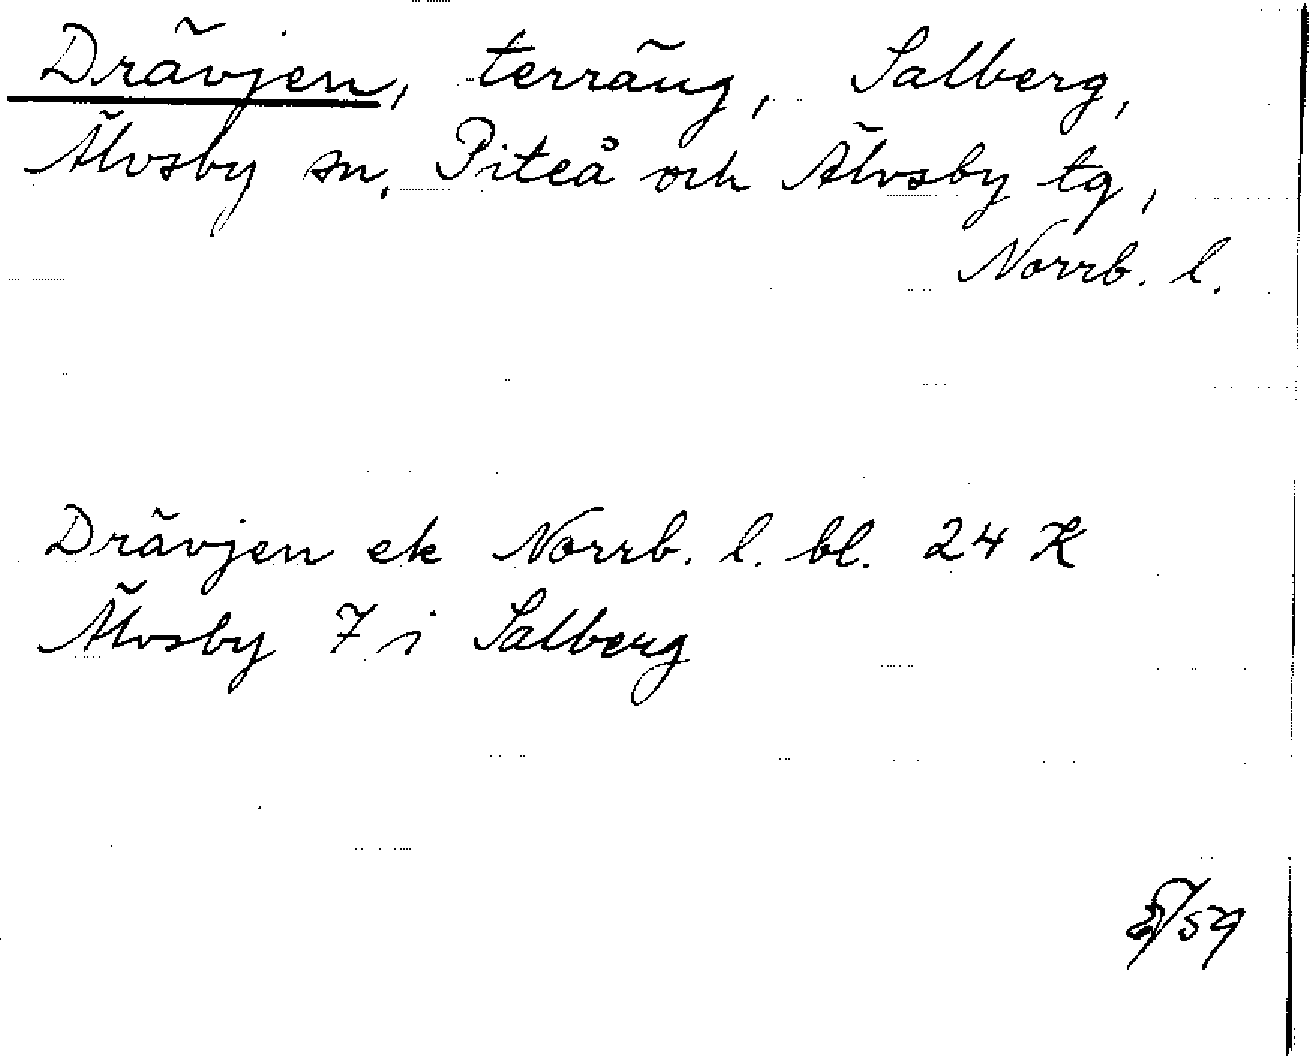 Drävjen, terräng, Salberg,
Älvsby sn, Piteå och Älvsby tg,
Norrb. l.
Drävjen ek Norrb. l. bl. 24 K
Älvsby 7 i Salberg
/59